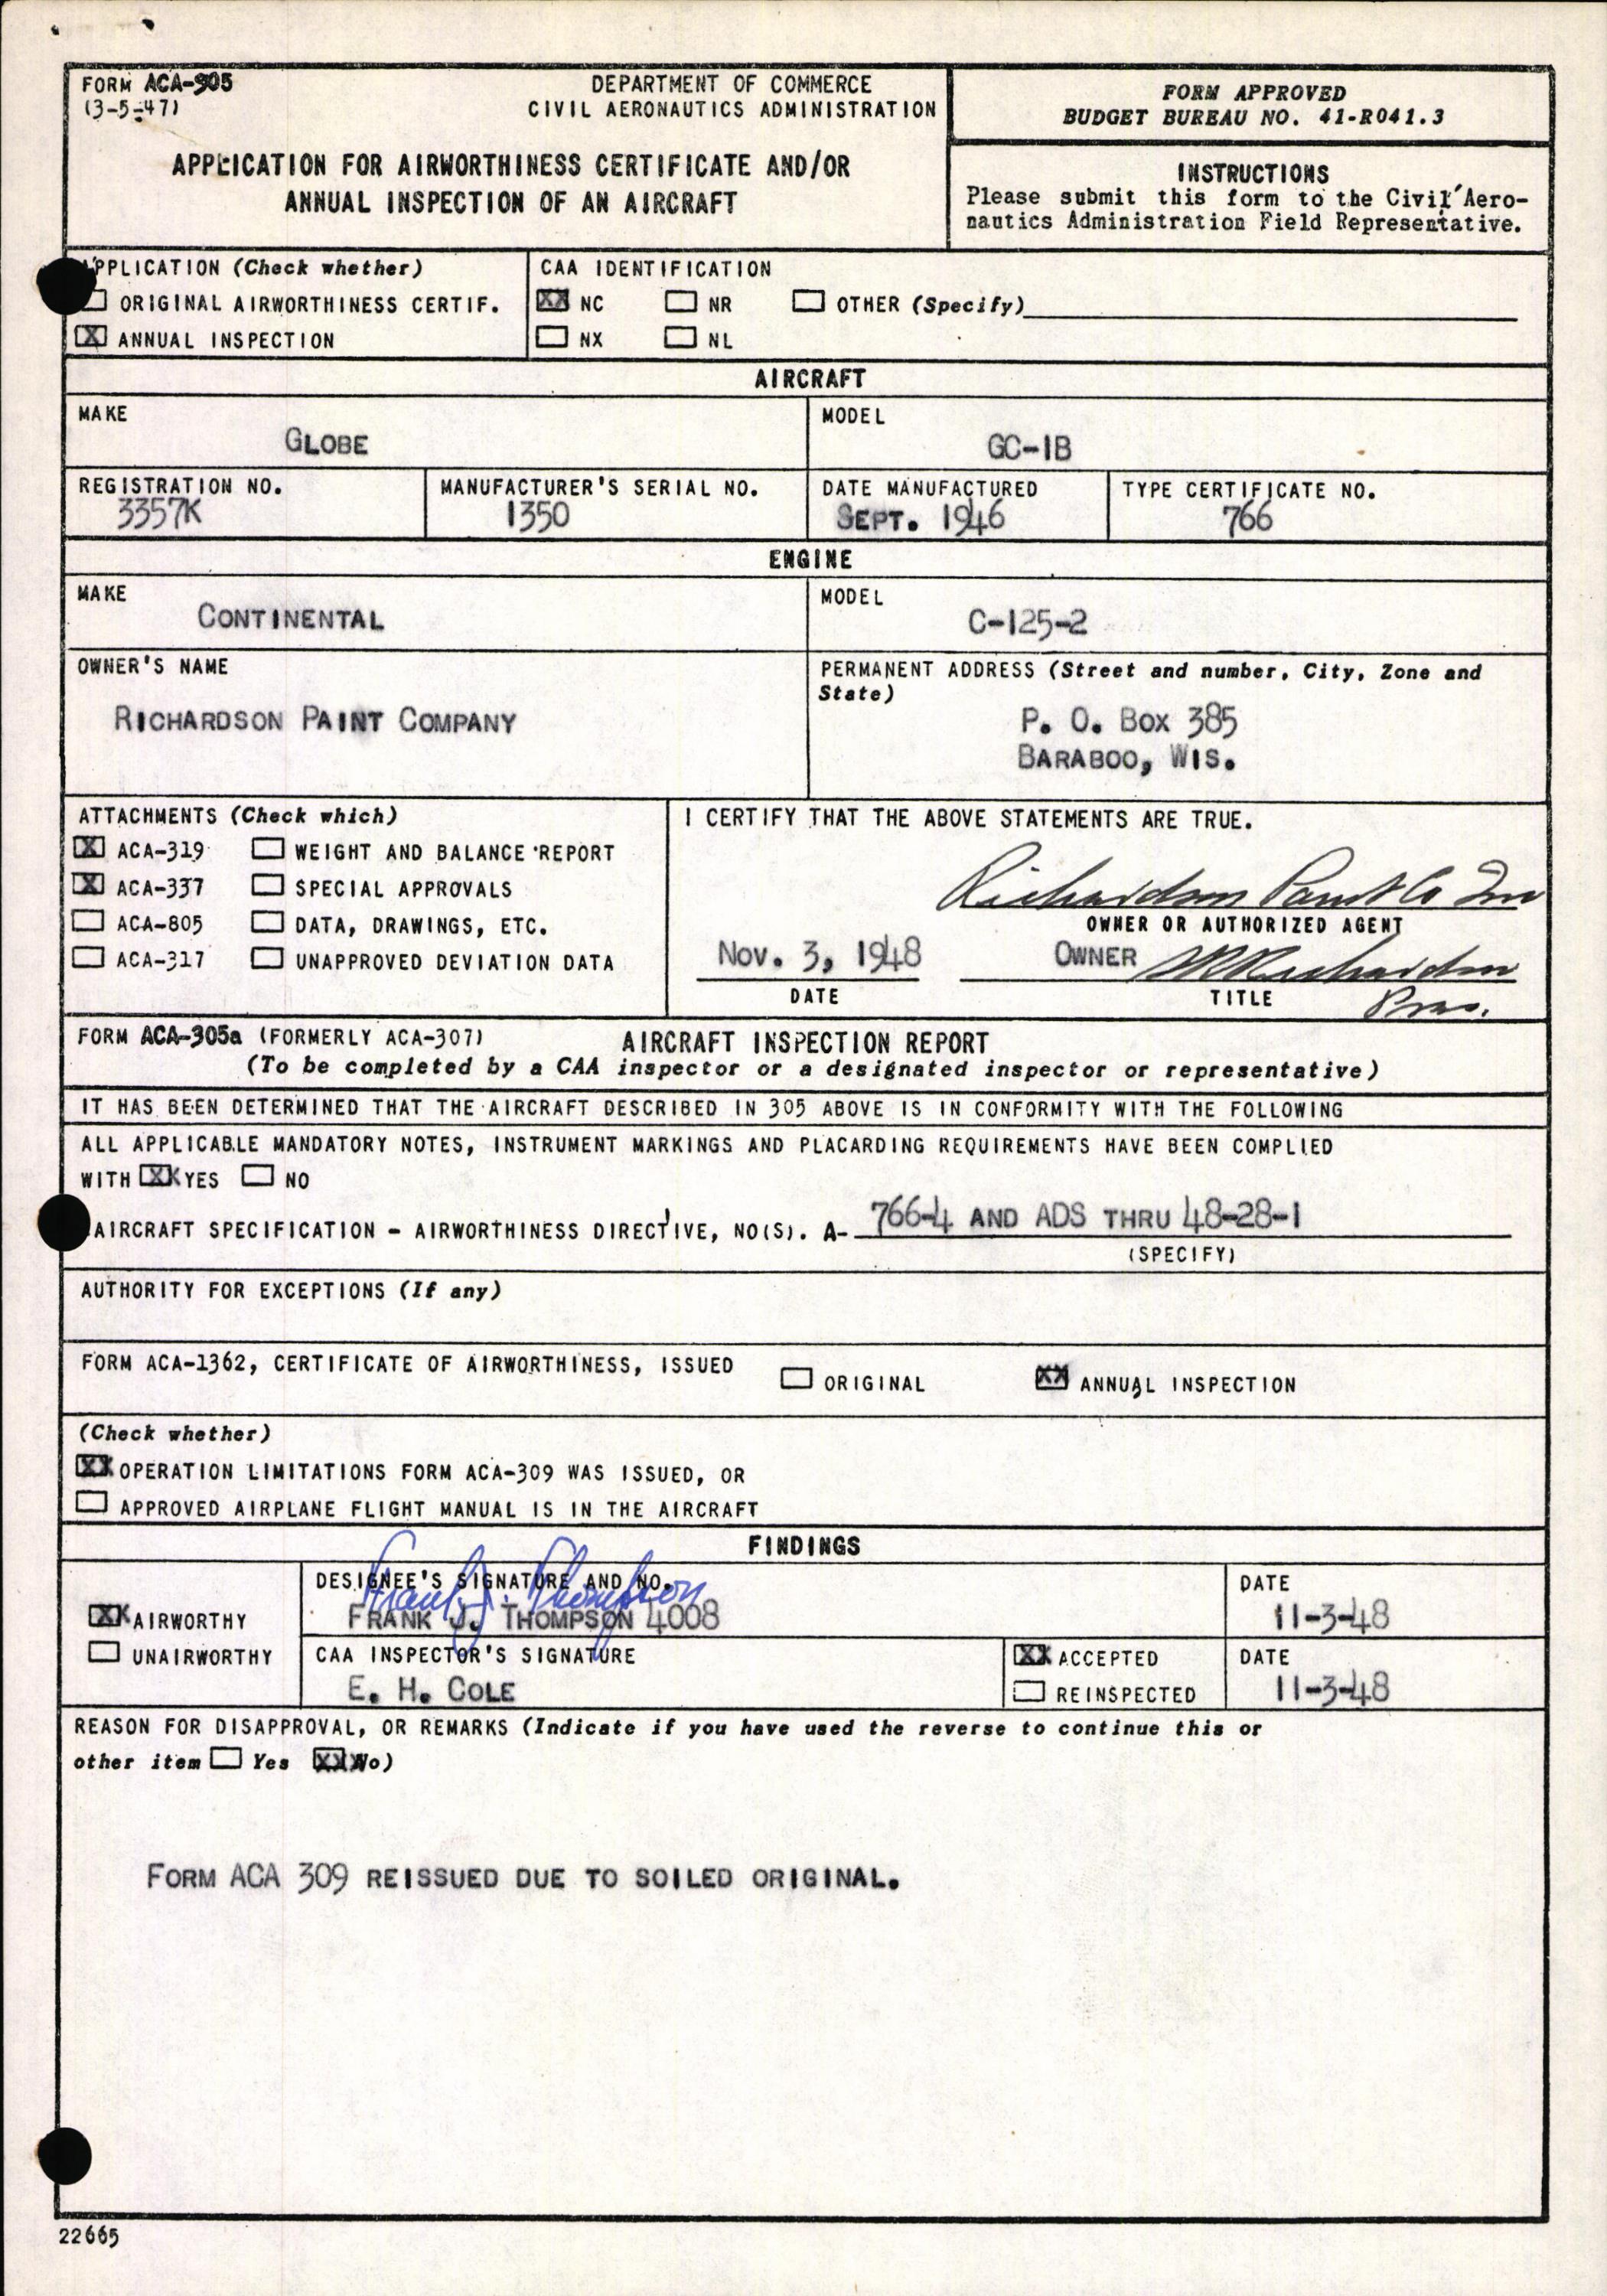 FORM ACA-305
(3-5-47)
DEPARTMENT OF COMMERCE
CIVIL AERONAUTICS ADMINISTRATION
APPLICATION FOR AIRWORTHINESS CERTIFICATE AND/OR
ANNUAL INSPECTION OF AN AIRCRAFT
FORM APPROVED
BUDGET BUREAU NO. 41-R041.3
INSTRUCTIONS
Please submit this form to the Civil Aero-
nautics Administration Field Representative.
APPLICATION (Check whether)
ORIGINAL AIRWORTHINESS CERTIF.
X ANNUAL INSPECTION
CAA IDENTIFICATION
XX NC NR OTHER (Specify)
NX NL
AIRCRAFT
MAKE
GLOBE
MODEL
GC-1B
REGISTRATION NO.
3357K
MANUFACTURER'S SERIAL NO.
1350
DATE MANUFACTURED
SEPT. 1946
TYPE CERTIFICATE NO.
766
ENGINE
MAKE
CONTINENTAL
MODEL
C-125-2
OWNER'S NAME
RICHARDSON PAINT COMPANY
PERMANENT ADDRESS (Street and number, City, Zone and
State)
P. O. BOX 385
BARABOO, WIS.
ATTACHMENTS (Check which)
X ACA-319 WEIGHT AND BALANCE REPORT
X ACA-337 SPECIAL APPROVALS
ACA-805 DATA, DRAWINGS, ETC.
ACA-317 UNAPPROVED DEVIATION DATA
I CERTIFY THAT THE ABOVE STATEMENTS ARE TRUE.
Richardson Paint Co Inc
OWNER OR AUTHORIZED AGENT
NOV. 3, 1948
DATE
OWNER Richardson
TITLE
Pres.
FORM ACA-305a (FORMERLY ACA-307) AIRCRAFT INSPECTION REPORT
(To be completed by a CAA inspector or a designated inspector or representative)
IT HAS BEEN DETERMINED THAT THE AIRCRAFT DESCRIBED IN 305 ABOVE IS IN CONFORMITY WITH THE FOLLOWING
ALL APPLICABLE MANDATORY NOTES, INSTRUMENT MARKINGS AND PLACARDING REQUIREMENTS HAVE BEEN COMPLIED
WITH XX YES NO
AIRCRAFT SPECIFICATION - AIRWORTHINESS DIRECTIVE, NO(S). A- 766-4 AND ADS THRU 48-28-1
(SPECIFY)
AUTHORITY FOR EXCEPTIONS (If any)
FORM ACA-1362, CERTIFICATE OF AIRWORTHINESS, ISSUED
ORIGINAL XX ANNUAL INSPECTION
(Check whether)
XX OPERATION LIMITATIONS FORM ACA-309 WAS ISSUED, OR
APPROVED AIRPLANE FLIGHT MANUAL IS IN THE AIRCRAFT
FINDINGS
XX AIRWORTHY
UNAIRWORTHY
DESIGNEE'S SIGNATURE AND NO.
Frank J. Thompson
FRANK J. THOMPSON 4008
DATE
11-3-48
CAA INSPECTOR'S SIGNATURE
E. H. COLE
XX ACCEPTED
REINSPECTED
DATE
11-3-48
REASON FOR DISAPPROVAL, OR REMARKS (Indicate if you have used the reverse to continue this or
other item Yes XXX No)
FORM ACA 309 REISSUED DUE TO SOILED ORIGINAL.
22665